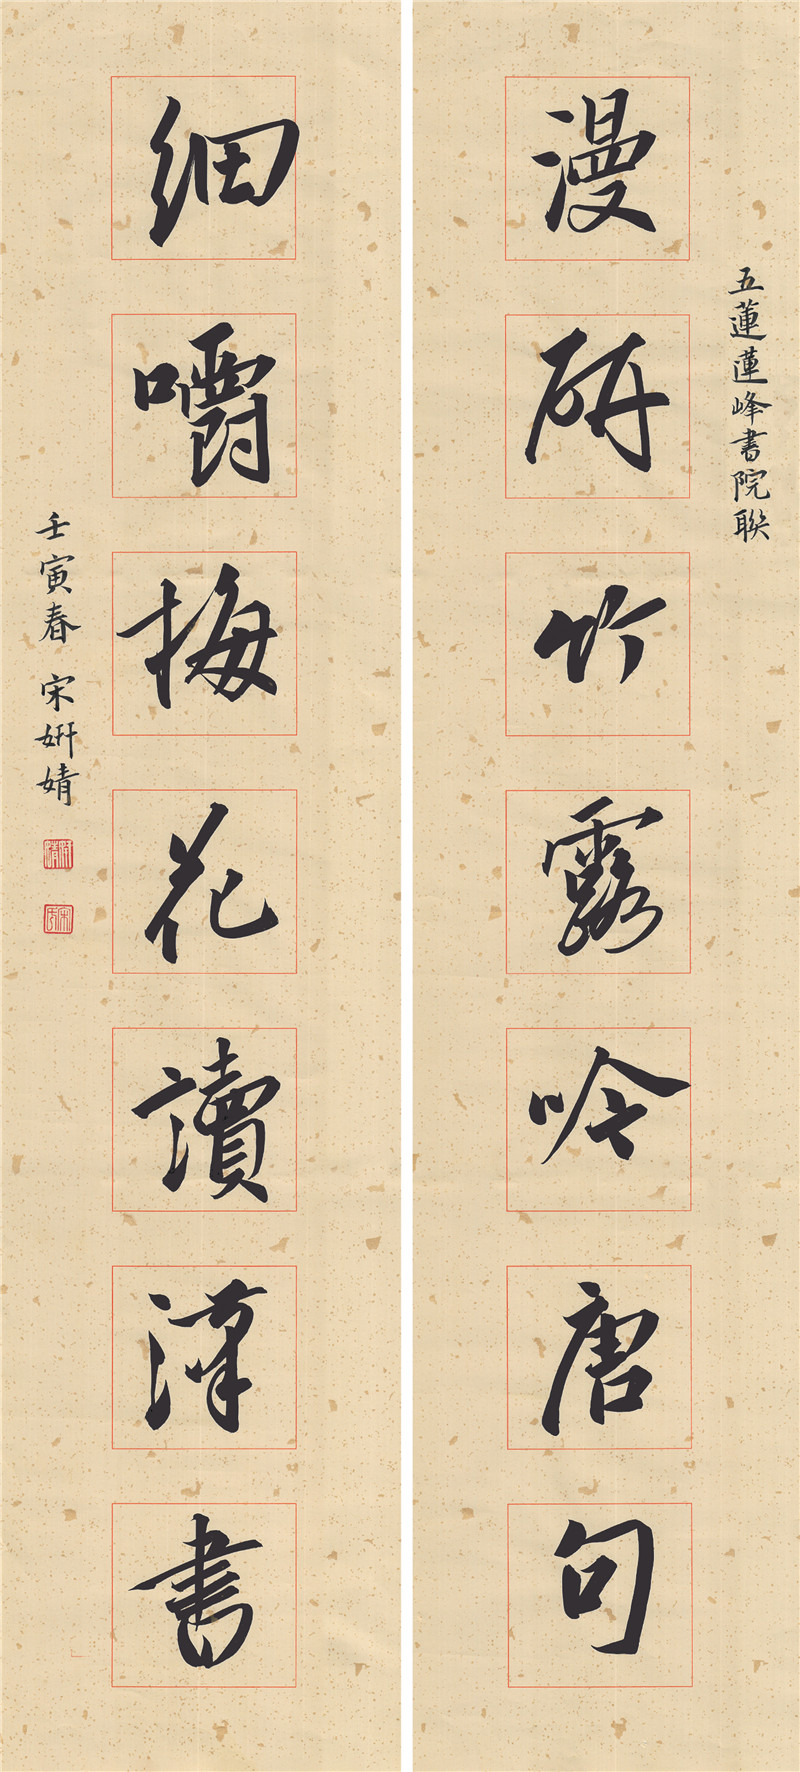 五蓮蓮峰書院聯
漫研竹露吟唐句
細嚼梅花讀漢書
壬寅春 宋姸婧
姸婧
宋氏